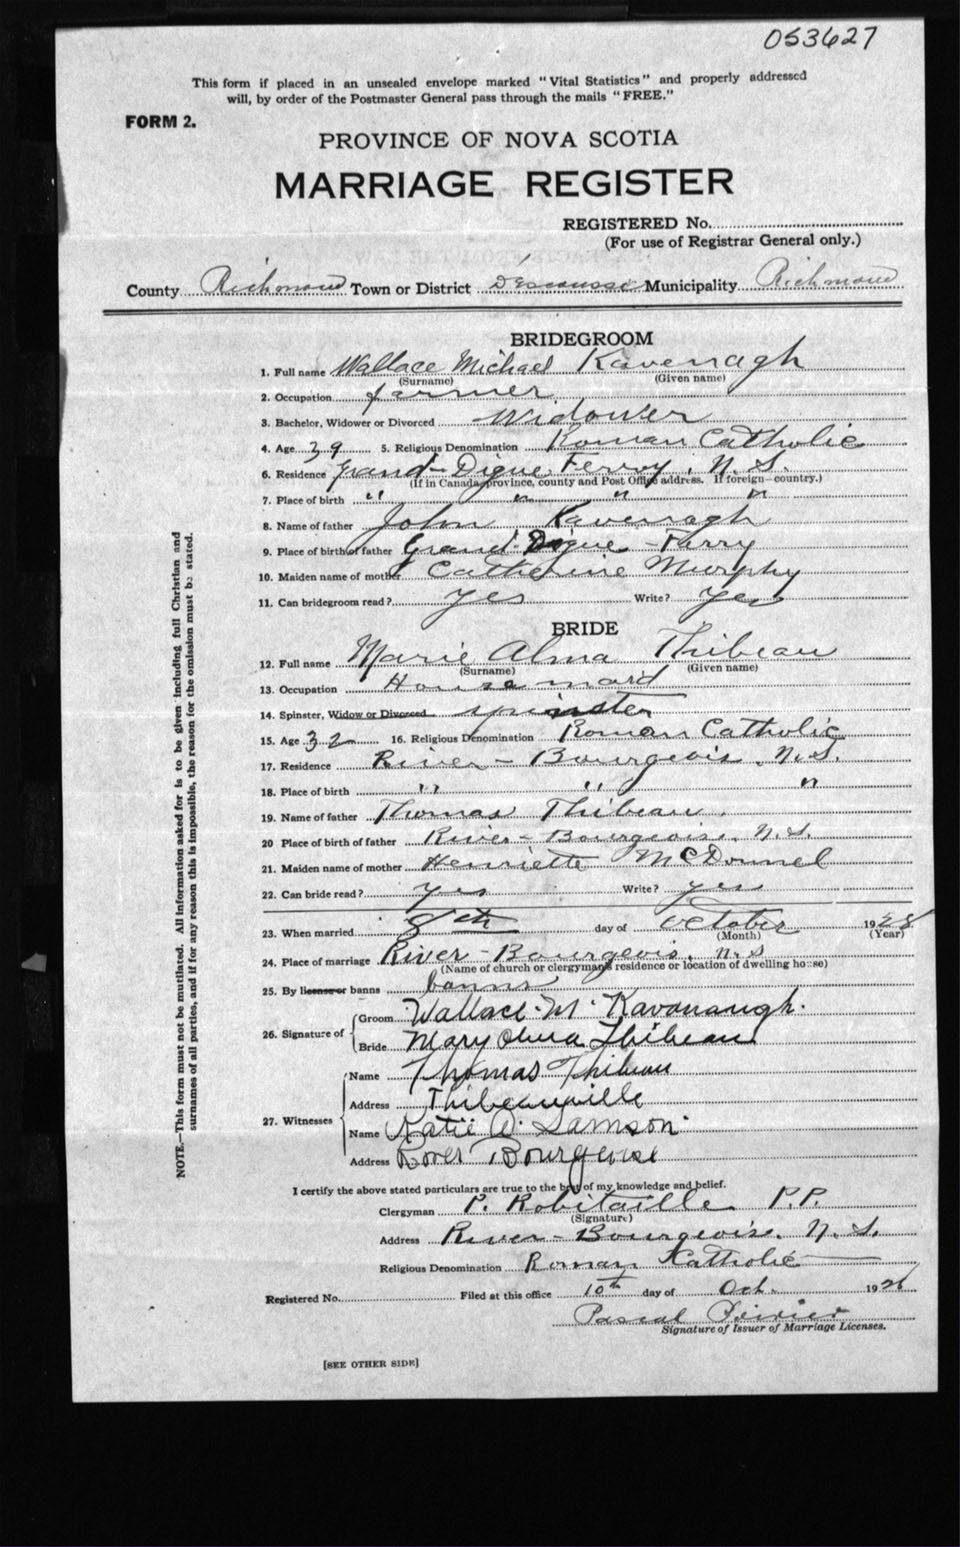 053627
This form if placed in an unsealed envelope marked "Vital Statistics" and properly addressed
will, by order of the Postmaster General pass through the mails "FREE."
FORM 2.
PROVINCE OF NOVA SCOTIA
MARRIAGE REGISTER
REGISTERED No.
(For use of Registrar General only.)
County Richmond Town or District D'escousse Municipality Richmond
BRIDEGROOM
1. Full name Wallace Michael Kavenagh
(Surname) (Given name)
2. Occupation farmer
3. Bachelor, Widower or Divorced Widower
4. Age 39 5. Religious Denomination Roman Catholic
6. Residence Grand-Digue Ferry, N.S.
(If in Canada province, county and Post Office address. If foreign—country.)
7. Place of birth " " " "
8. Name of father John Kavenagh
9. Place of birth of father Grand-Digue-Ferry
10. Maiden name of mother Catherine Murphy
11. Can bridegroom read? yes Write? yes
BRIDE
12. Full name Marie Alma Thibeau
(Surname) (Given name)
13. Occupation House maid
14. Spinster, Widow or Divorced spinster
15. Age 32 16. Religious Denomination Roman Catholic
17. Residence River-Bourgeois, N.S.
18. Place of birth " " "
19. Name of father Thomas Thibeau
20 Place of birth of father River-Bourgeois, N.S.
21. Maiden name of mother Henriette McDonnel
22. Can bride read? yes Write? yes
23. When married 8th day of October 1928
(Month) (Year)
24. Place of marriage River-Bourgeois, N.S
(Name of church or clergyman's residence or location of dwelling house)
25. By license or banns banns
26. Signature of Groom Wallace M Kavanaugh.
Bride Mary Alma Thibeau
27. Witnesses Name Thomas Thibeau
Address Thibeauville
Name Katie A. Samson
Address River Bourgeois
I certify the above stated particulars are true to the best of my knowledge and belief.
Clergyman P. Robitaille P.P.
(Signature)
Address River-Bourgeois, N.S.
Religious Denomination Roman Catholic
Registered No. Filed at this office 10th day of Oct. 192
Pascal
Signature of Issuer of Marriage Licenses.
[SEE OTHER SIDE]
NOTE.—This form must not be mutilated. All information asked for is to be given including full Christian and
surnames of all parties, and if for any reason this is impossible, the reason for the omission must be stated.